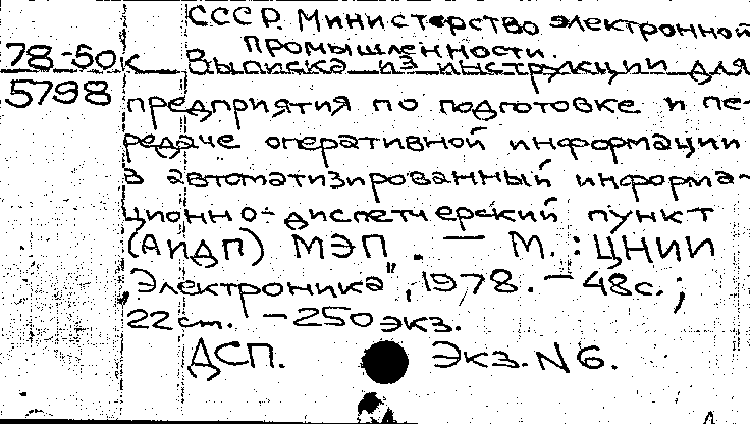 СССР. Министерство электронной
промышленности.
78-50к Выписка из инструкции для
5798 предприятия по подготовке и пе-
редаче оперативной информации
в автоматизированный информа-
ционно-диспетчерский пункт
(АИДП) МЭП. — М.: ЦНИИ
„Электроника", 1978. — 48с.;
22 см. — 250 экз.
ДСП. Экз. N 6.